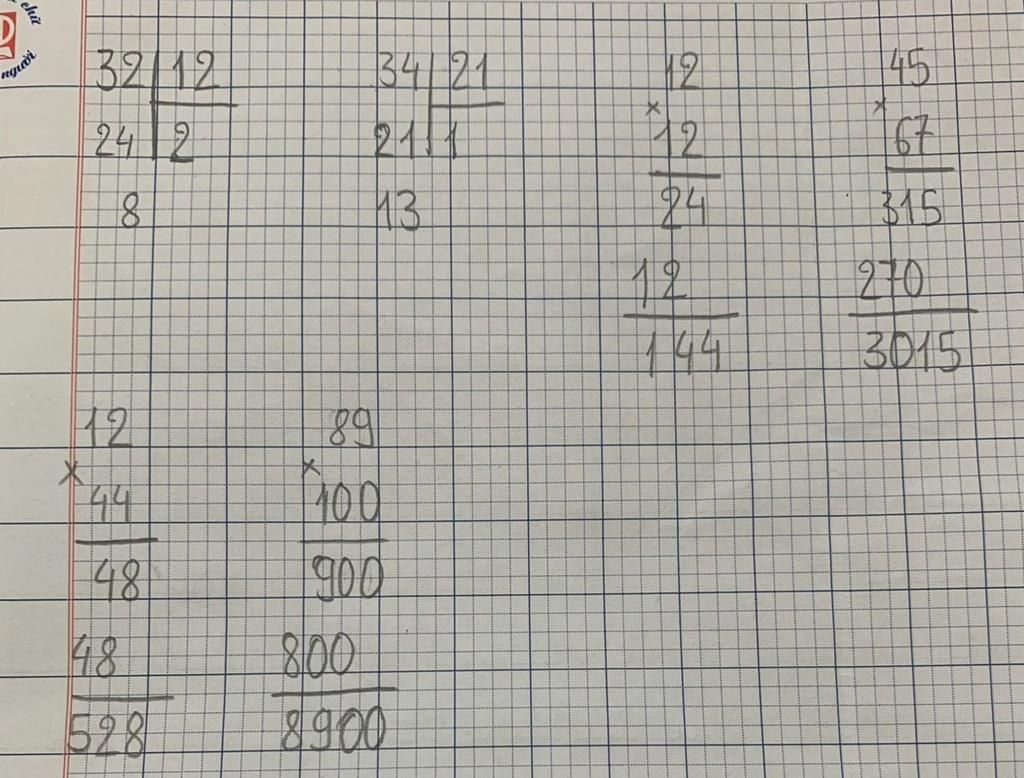 chữ
người
32 12 34 21 12 45
24 2 21 1 × 12 × 67
8 13 24 315
12 270
144 3015
12 89
× 44 × 100
48 900
48 800
528 8900